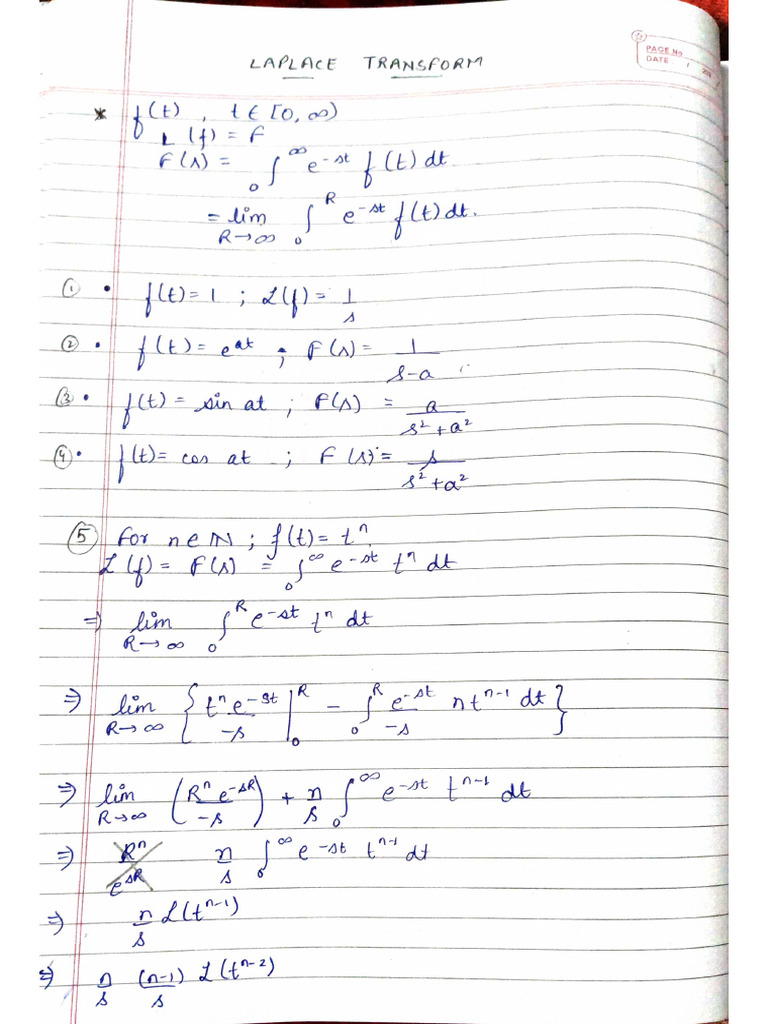 PAGE No
DATE
LAPLACE TRANSFORM
* f(t) , t ∈ [0, ∞)
L (f) = F
F(s) = ∫₀^∞ e^{-st} f(t) dt
= lim_{R→∞} ∫₀^R e^{-st} f(t) dt.
① • f(t) = 1 ; L(f) = 1/s
② • f(t) = e^{at} ; F(s) = 1/(s-a)
③ • f(t) = sin at ; F(s) = a/(s²+a²)
④ • f(t) = cos at ; F(s) = s/(s²+a²)
⑤ For n ∈ N ; f(t) = tⁿ
L(f) = F(s) = ∫₀^∞ e^{-st} tⁿ dt
⇒ lim_{R→∞} ∫₀^R e^{-st} tⁿ dt
⇒ lim_{R→∞} { tⁿ e^{-st}/-s |₀^R - ∫₀^R e^{-st}/-s n t^{n-1} dt }
⇒ lim_{R→∞} ( Rⁿ e^{-sR}/-s ) + n/s ∫₀^∞ e^{-st} t^{n-1} dt
⇒ Rⁿ/e^{sR} n/s ∫₀^∞ e^{-st} t^{n-1} dt
⇒ n/s L(t^{n-1})
⇒ n/s (n-1)/s L(t^{n-2})